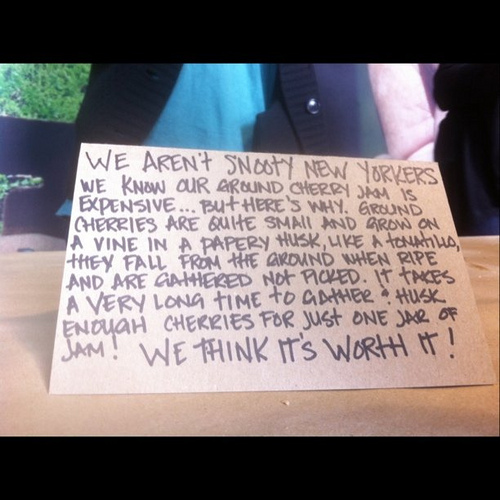 WE AREN'T SNOOTY NEW YORKERS
WE KNOW OUR GROUND CHERRY JAM IS
EXPENSIVE... BUT HERE'S WHY. GROUND
CHERRIES ARE QUITE SMALL AND GROW ON
A VINE IN A PAPERY HUSK, LIKE A TOMATILLO,
THEY FALL FROM THE GROUND WHEN RIPE
AND ARE GATHERED NOT PICKED. IT TAKES
A VERY LONG TIME TO GATHER & HUSK
ENOUGH CHERRIES FOR JUST ONE JAR OF
JAM! WE THINK IT'S WORTH IT!